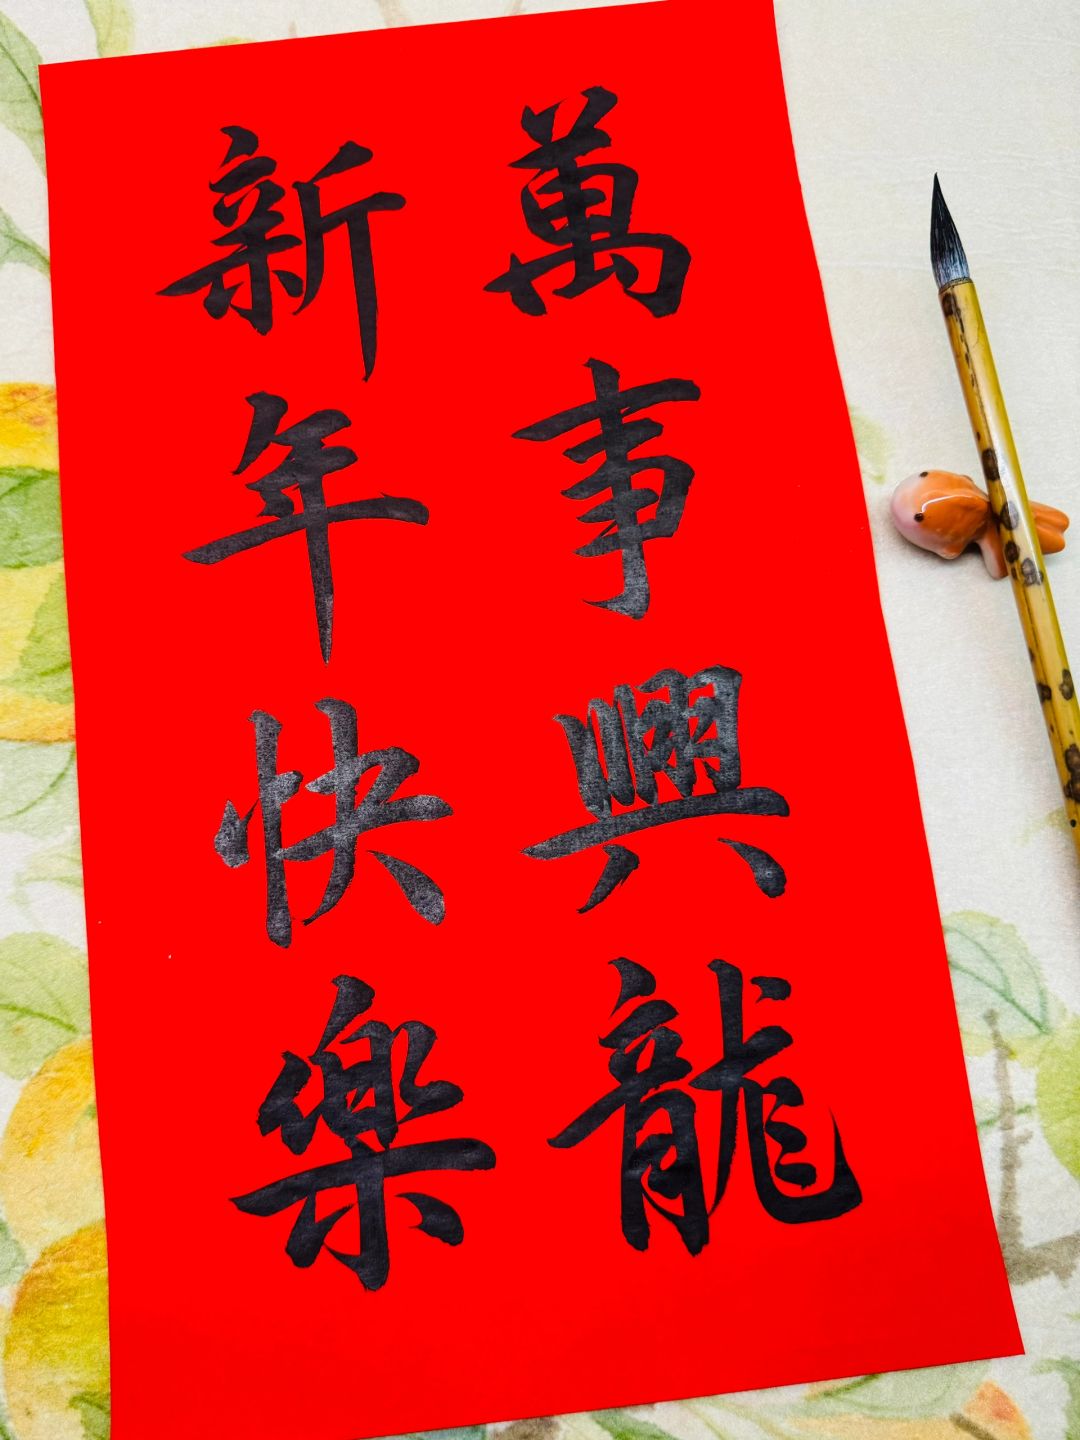 萬事興龍
新年快樂